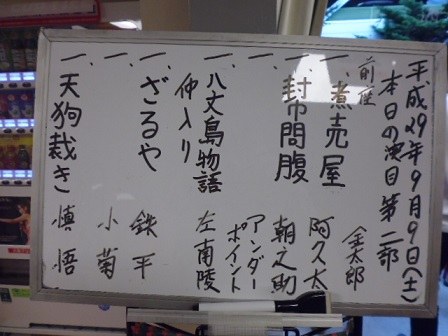 平成29年9月9日(土)
本日の演目 第二部
前座 金太郎
一、煮売屋 阿久太
一、封巾間腹 朝之助
一、 アンダーポイント
一、八丈島物語 左南陵
仲入り
一、ざるや 鉄平
一、 小菊
一、天狗裁き 慎悟